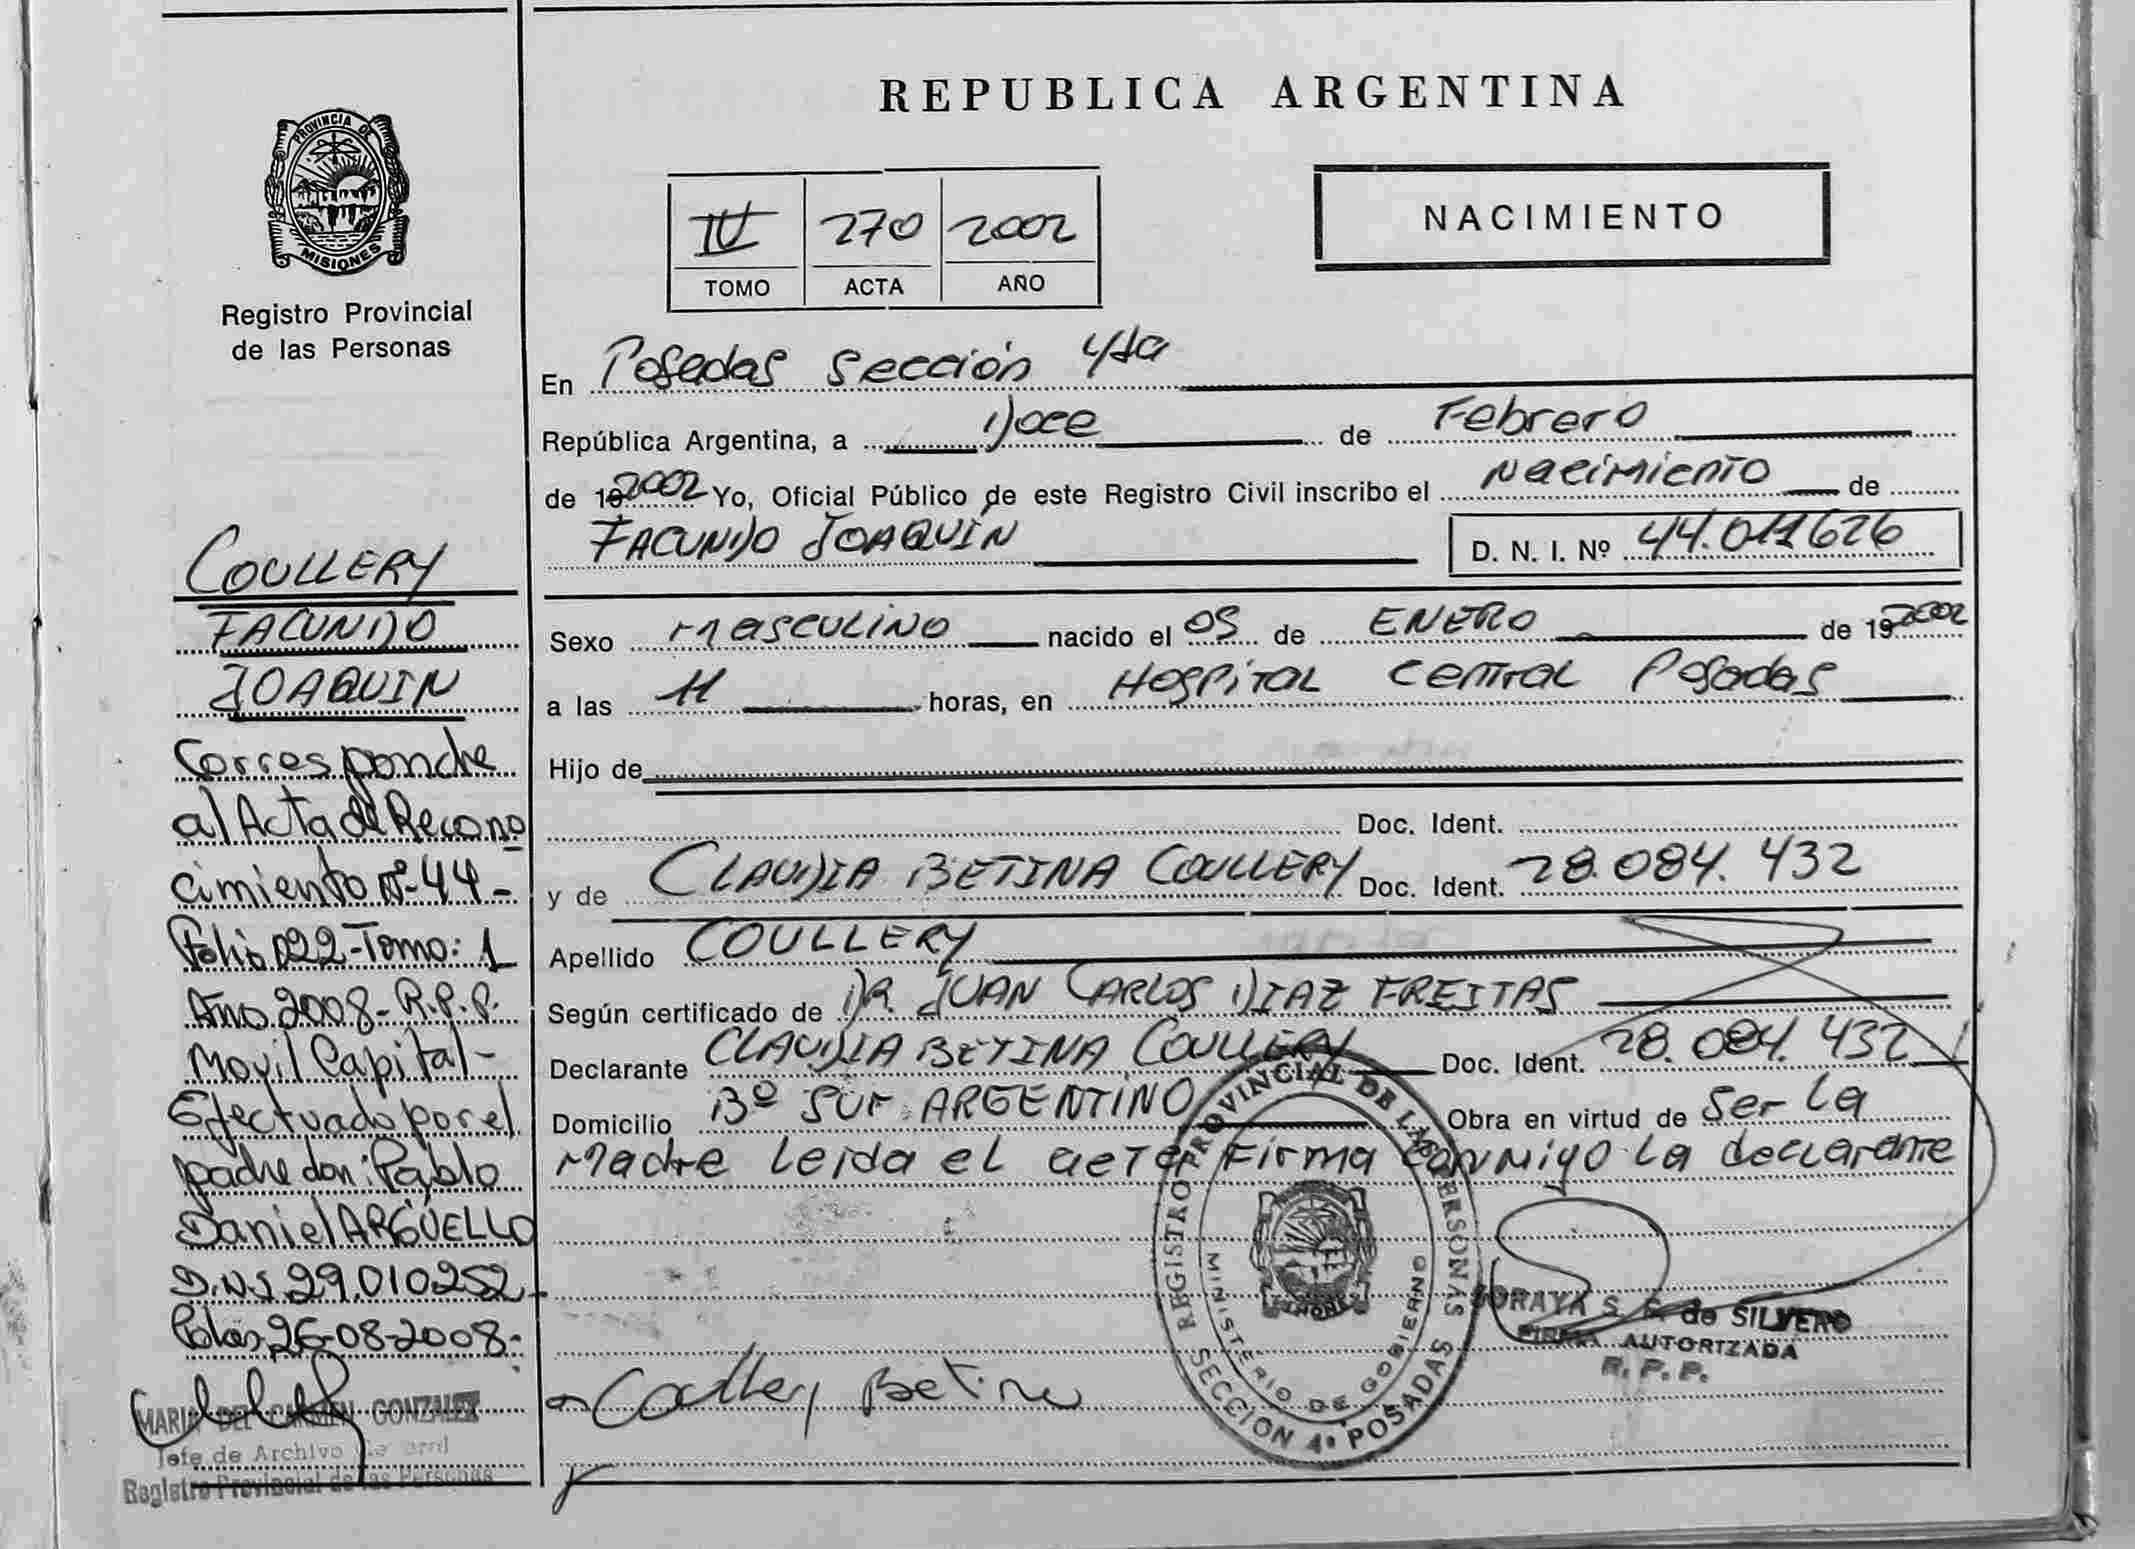 PROVINCIA DE
MISIONES
Registro Provincial
de las Personas
COULLERY
FACUNDO
JOAQUIN
Corresponde
al Acta de Recono
cimiento Nº 44-
Folio 022-Tomo: 1
Año 2008-R.P.P.
Movil Capital-
Efectuado por el
padre don: Pablo
Daniel ARGÜELLO
D.N.I 29.010252-
26-08-2008-
MARIA DEL CARMEN GONZALEZ
Jefe de Archivo General
Registro Provincial de las Personas
REPUBLICA ARGENTINA
IV 270 2002
TOMO ACTA AÑO
NACIMIENTO
En Posadas Sección 4ta
República Argentina, a Doce de Febrero
de 19 2002 Yo, Oficial Público de este Registro Civil inscribo el Nacimiento de
FACUNDO JOAQUIN D. N. I. Nº 44.011626
Sexo Masculino nacido el 05 de ENERO de 19 2002
a las 11 horas, en Hospital Central Posadas
Hijo de
Doc. Ident.
y de CLAUDIA BETINA COULLERY Doc. Ident. 28.084.432
Apellido COULLERY
Según certificado de DR. JUAN CARLOS DIAZ FREITAS
Declarante CLAUDIA BETINA COULLERY Doc. Ident. 28.084.432
Domicilio Bº SUR ARGENTINO Obra en virtud de Ser la
Madre Leida el acta Firma conmigo la declarante
REGISTRO PROVINCIAL DE LAS PERSONAS
MINISTERIO DE GOBIERNO
SECCION 4ª POSADAS
SORAYA S. de SILVERO
FIRMA AUTORIZADA
R. P. P.
Coullery Betina